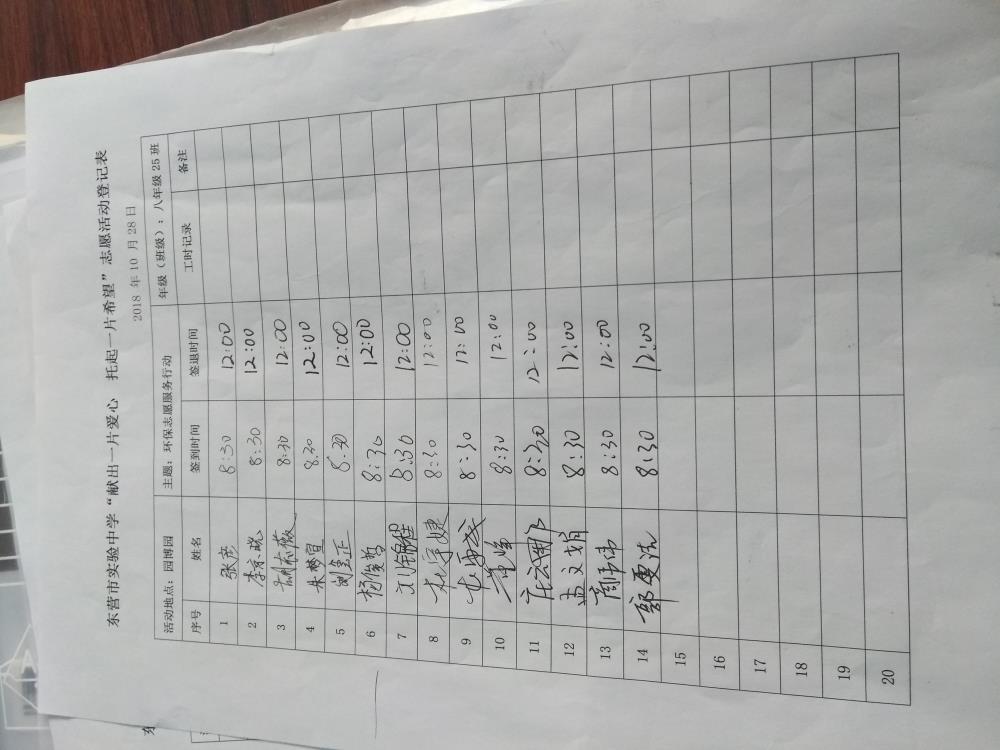 东营市实验中学“献出一片爱心 托起一片希望”志愿活动登记表
2018 年 10 月 28 日
活动地点：园博园 主题：环保志愿服务行动 年级（班级）：八年级 25 班
序号 姓名 签到时间 签退时间 工时记录 备注
1 张彦 8:30 12:00
2 李京晓 8:30 12:00
3 薇 8:30 12:00
4 朱梦宣 8.30 12:00
5 刘玉正 8.30 12:00
6 杨俊哲 8:30 12:00
7 刘锦桂 8:30 12:00
8 8:30 12:00
9 8:30 12:00
10 8:30 12:00
11 8:30 12:00
12 孟文娟 8:30 12:00
13 商伟伟 8:30 12:00
14 郭 8:30 12:00
15
16
17
18
19
20